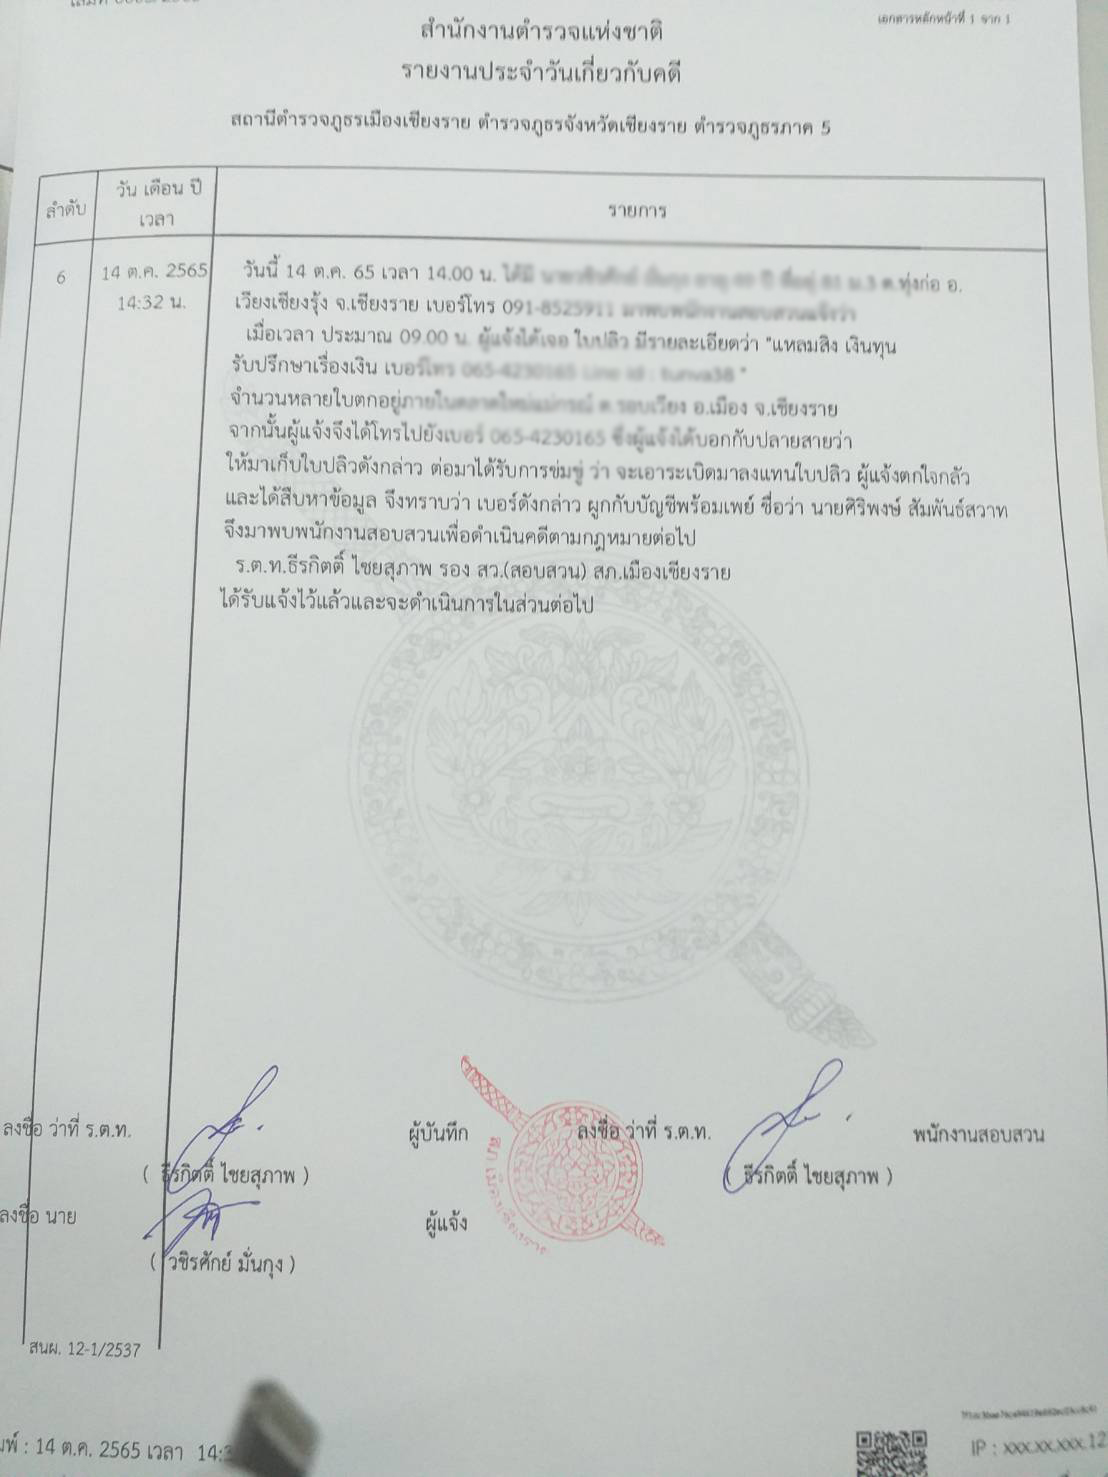 เอกสารหลักหน้าที่ 1 จาก 1
สำนักงานตำรวจแห่งชาติ
รายงานประจำวันเกี่ยวกับคดี
สถานีตำรวจภูธรเมืองเชียงราย ตำรวจภูธรจังหวัดเชียงราย ตำรวจภูธรภาค 5
ลำดับ
วัน เดือน ปี
เวลา
รายการ
6
14 ต.ค. 2565
14:32 น.
วันนี้ 14 ต.ค. 65 เวลา 14.00 น. ต.ทุ่งก่อ อ.
เวียงเชียงรุ้ง จ.เชียงราย เบอร์โทร
เมื่อเวลา ประมาณ 09.00 น. ผู้แจ้งได้เจอ ใบปลิว มีรายละเอียดว่า "แหลมสิง เงินทุน
รับปรึกษาเรื่องเงิน เบอร์โทร
จำนวนหลายใบตกอยู่ อ.เมือง จ.เชียงราย
จากนั้นผู้แจ้งจึงได้โทรไปยังเบอร์ ซึ่งผู้แจ้งได้บอกกับปลายสายว่า
ให้มาเก็บใบปลิวดังกล่าว ต่อมาได้รับการข่มขู่ ว่า จะเอาระเบิดมาลงแทนใบปลิว ผู้แจ้งตกใจกลัว
และได้สืบหาข้อมูล จึงทราบว่า เบอร์ดังกล่าว ผูกกับบัญชีพร้อมเพย์ ชื่อว่า นายศิริพงษ์ สัมพันธ์สวาท
จึงมาพบพนักงานสอบสวนเพื่อดำเนินคดีตามกฎหมายต่อไป
ร.ต.ท.ธีรกิตติ์ ไชยสุภาพ รอง สว.(สอบสวน) สภ.เมืองเชียงราย
ได้รับแจ้งไว้แล้วและจะดำเนินการในส่วนต่อไป
ลงชื่อ ว่าที่ ร.ต.ท. ผู้บันทึก ลงชื่อ ว่าที่ ร.ต.ท. พนักงานสอบสวน
( ธีรกิตติ์ ไชยสุภาพ ) ( ธีรกิตติ์ ไชยสุภาพ )
ลงชื่อ นาย ผู้แจ้ง
( วชิรศักย์ มั่นกุง )
สภ.เมืองเชียงราย
สนผ. 12-1/2537
14 ต.ค. 2565 เวลา
IP : xxx.xx.xxx.12